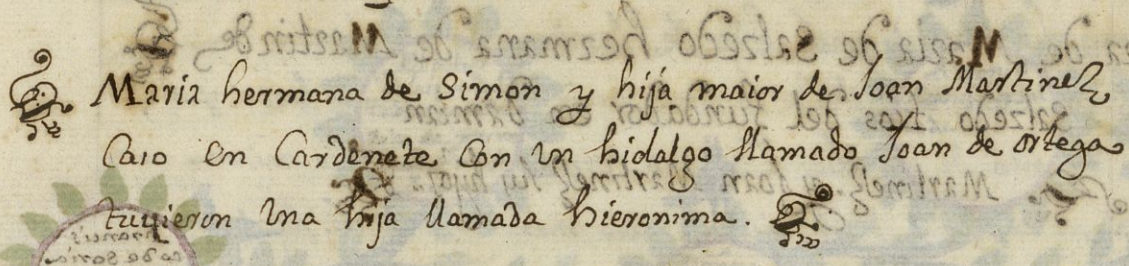 Maria hermana de Simon y hija maior de Joan Martinez
Caso en Cardenete con un hidalgo llamado Joan de ortega
tuvieron una hija llamada hieronima.
Francis
co de Soria